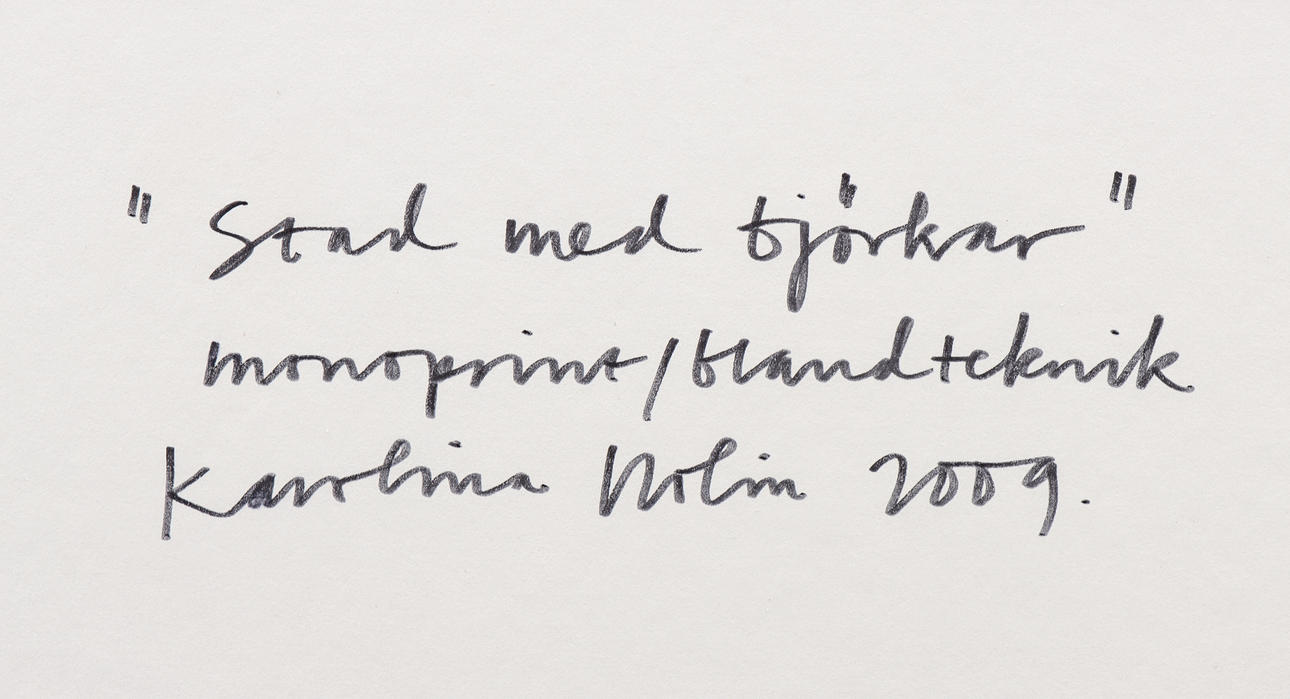 "Stad med björkar"
monoprint/blandteknik
Karolina Nolin 2009.